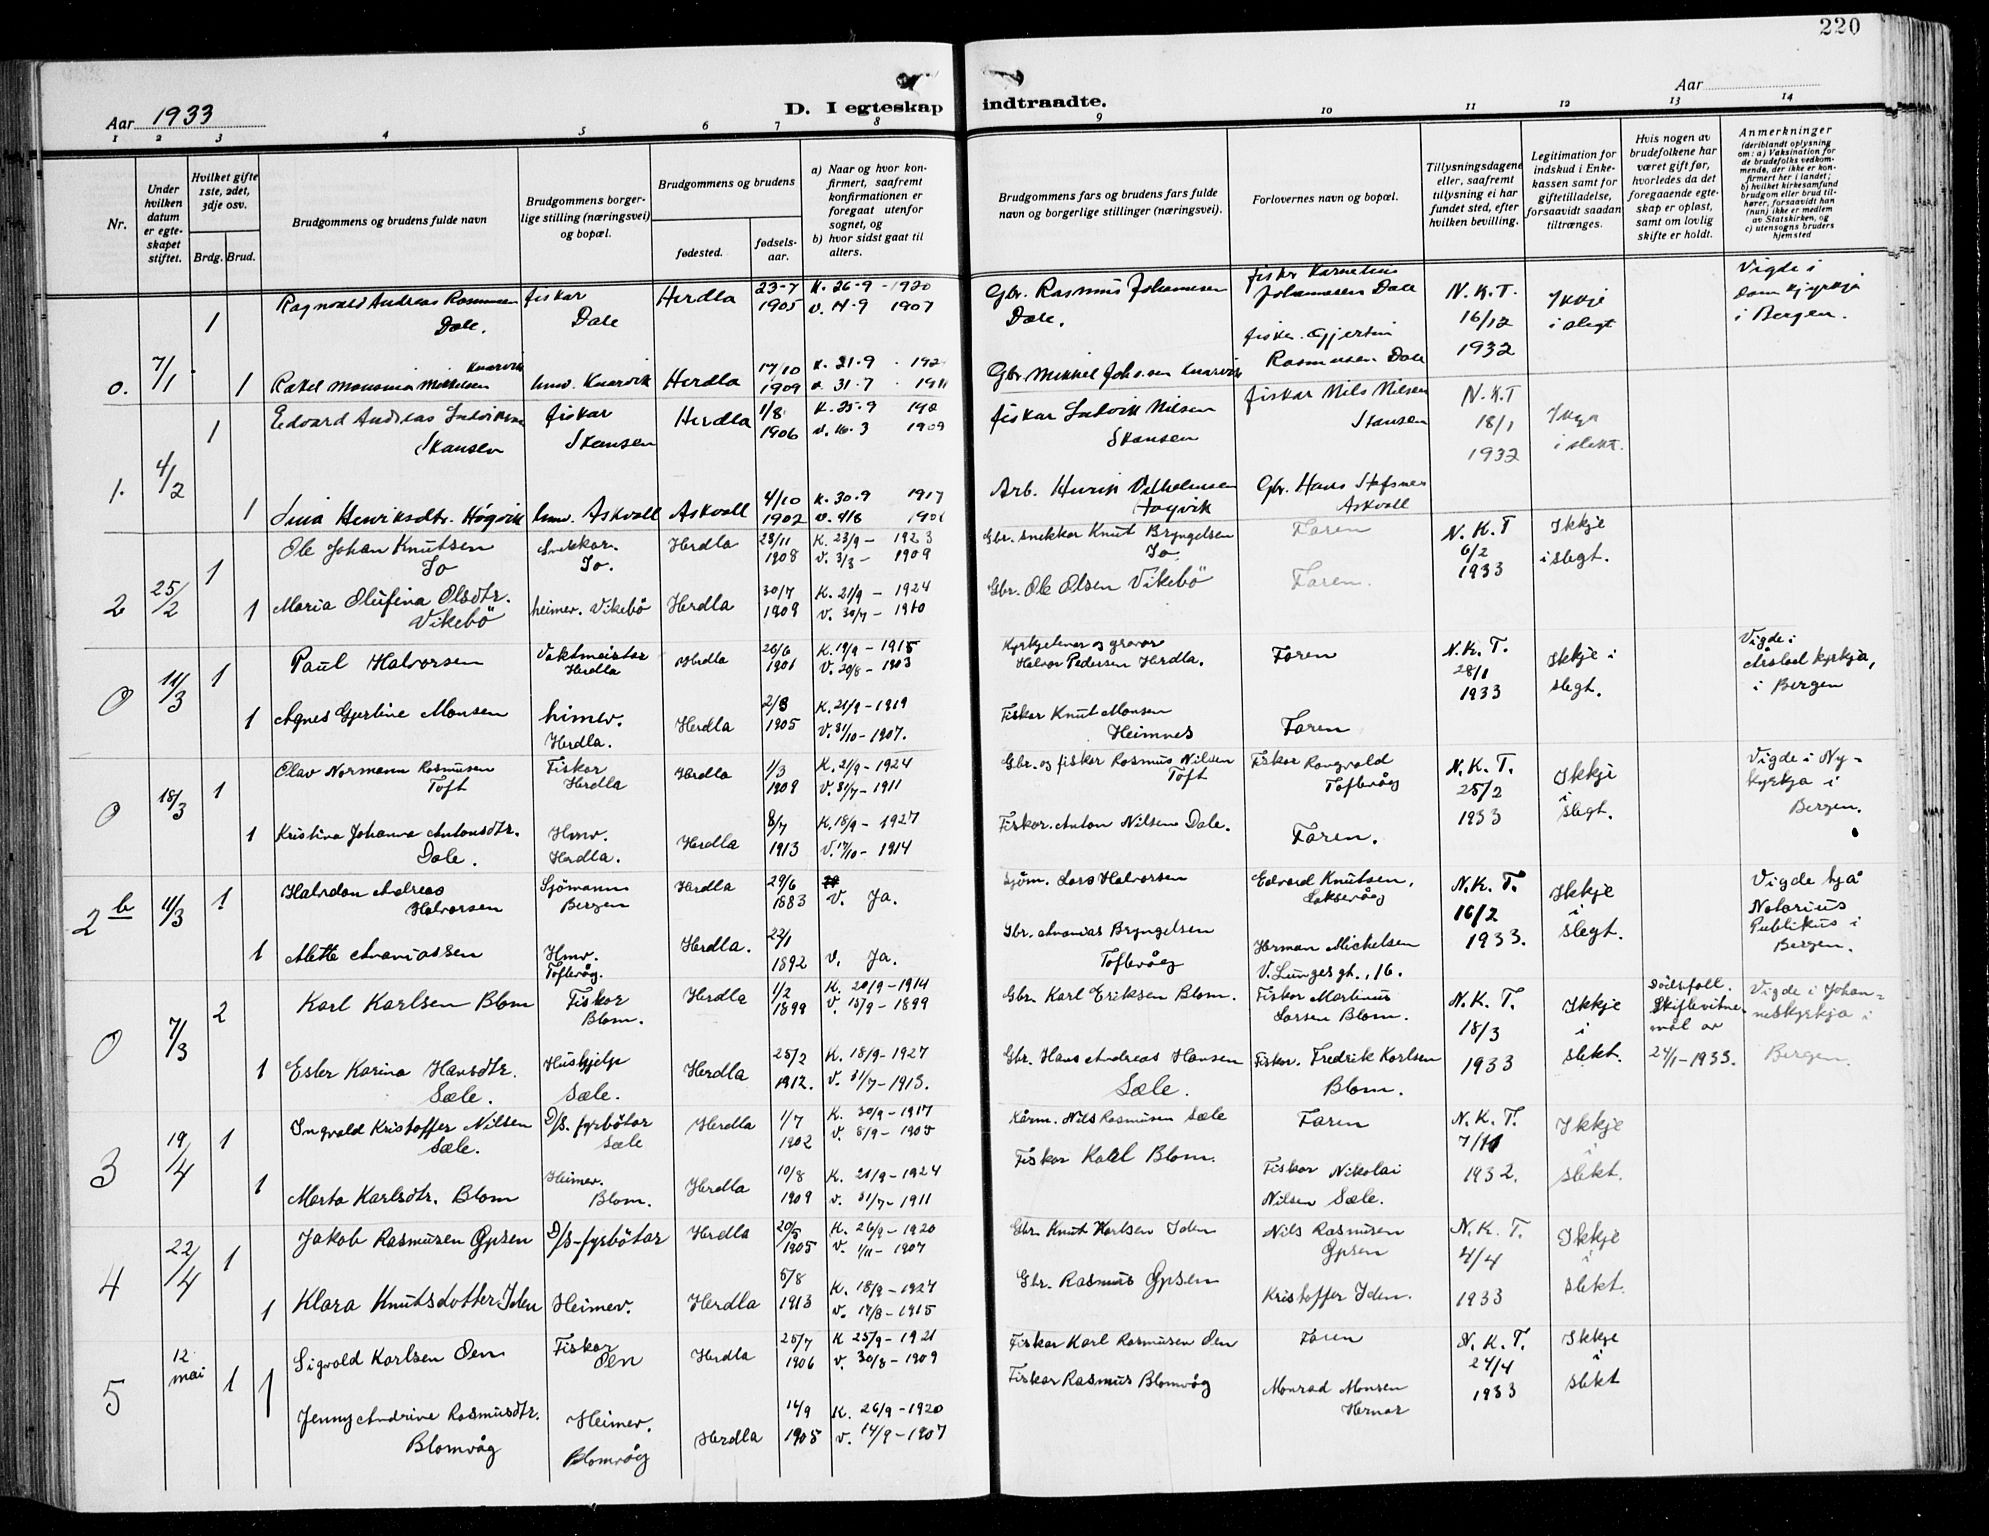 220
Aar 1933
D. I egteskap
indtraadte.
Aar
1 2 3 4 5 6 7 8 9 10 11 12 13 14
Nr.
Under hvilken datum er egteskapet stiftet.
Hvilket gifte 1ste, 2det, 3dje osv.
Brdg. Brud.
Brudgommens og brudens fulde navn
Brudgommens borgerlige stilling (næringsvei) og bopæl.
Brudgommens og brudens
fødested. fødselsaar.
a) Naar og hvor konfirmert, saafremt konfirmationen er foregaat utenfor sognet, og
b) hvor sidst gaat til alters.
Brudgommens fars og brudens fars fulde navn og borgerlige stillinger (næringsvei).
Forlovernes navn og bopæl.
Tillysningsdagene eller, saafremt tillysning ei har fundet sted, efter hvilken bevilling.
Legitimation for indskud i Enkekassen samt for giftetilladelse, forsaavidt saadan tiltrænges.
Hvis nogen av brudefolkene har været gift før, hvorledes da det foregaaende egteskap er opløst, samt om lovlig skifte er holdt.
Anmerkninger
(deriblandt oplysning om: a) Vaksination for de brudefolks vedkommende, der ikke er konfirmert her i landet; b) hvilket kirkesamfund brudgom eller brud tilhører, forsaavidt han (hun) ikke er medlem av Statskirken, og c) utensogns bruders hjemsted
1 Ragnvald Andreas Rasmussen Dale. fiskar Dale Herdla 23-7 1905 K. 26-9 - 1920 v. 14-9 1907 Gbr. Rasmus Johannesen Dale. fiskr Karnelius Johannesen Dale N.K.T. 16/12 1932 Ikkje i slegt Vigde i Domkjyrkja i Bergen.
0. 7/1 1 Rakel Monsina Mikkelsen Knarvik hmv. Knarvik Herdla 17/10 1909 K. 21-9 v. 31-7 1911 Gbr. Mikkel Johs.en Knarvik fisker Gjertin Rasmussen Dale
1 Edvard Andreas Ludviksen Skansen fiskar Skansen Herdla 1/8 1906 K. 25-9 v. 16-3 1909 fiskar Ludvik Nilsen Skansen fiskar Nils Nilsen Skansen N.K.T 18/1 1932 Ikkje i slekt.
1. 4/2 1 Lina Henriksdtr. Høgvik hmv. Askvoll Askvoll 4/10 1902 K. 30-9 1917 v. 4/8 Arb. Henrik Vilhelmsen Høgvik Gbr. Hans Stafsnes Askvoll
1 Ole Johan Knutsen Io Snekkar. Io. Herdla 28/11 1908 K. 23/9 - 1923 V. 3/3 - 1909 Gbr. snekkar Knut Bryngelsen Io Faren N.K.T 6/2 1933 Ikkje i slegt.
2 25/2 1 Maria Olufina Olsdtr. Vikebö heimev. Vikebö Herdla 30/7 1909 K. 21/9 - 1924 V. 30/7 - 1910 Gbr. Ole Olsen Vikebö Faren.
0 11/3 1 Paul Halvorsen Vaktmeister Herdla Herdla 26/6 1901 K. 19/9 - 1915 V. 20/8 - 1903 Kyrkjetenar og gravar Halvor Pedersen Herdla. Faren N.K.T. 28/1 1933 Ikkje i slegt. Vigde i Årstad kyrkja, i Bergen
1 Agnes Gjertine Monsen himev. Herdla. Herdla 2/8 1905 K. 21/9 - 1919 V. 31/10 - 1907. Fiskar Knut Monsen Heimnes Faren
0 18/3 1 Olav Normann Rasmusen Toft Fiskar Herdla Herdla 1/3 1909 K. 21/9 - 1924 V. 31/7 - 1911 Gbr. og fisker Rasmus Nilsen Toft Fiskar Rangvald Toftevåg N.K.T. 25/2 1933 Ikkje i slegt. Vigde i Nykyrkja i Bergen.
1 Kristina Johanna Antonsdtr. Dale. Hmv. Herdla. Herdla 8/7 1913 K. 18/9 - 1927 V. 17/10 - 1914 Fiskar. Anton Nilsen Dale. Faren.
2 b 11/3 1 Halvdan Andreas Halvorsen Sjömann Bergen Herdla 29/6 1883 V. Ja. Sjöm. Lars Halvorsen Edvard Knutsen, Laksevåg N.K.T. 16/2 1933. Ikkje i slegt. Vigde hjå Notarius Publikus i Bergen.
1 Mette Ananiassen Hmv. Toftevåg. Herdla. 22/1 1892 V. Ja. Gbr. Ananias Bryngelsen Toftevåg Herman Michelsen V. Lungesgt., 16.
0 7/3 2 Karl Karlsen Blom Fiskar Blom. Herdla 1/2 1899 K. 20/9 - 1914 V. 15/9 - 1899 Gbr. Karl Eriksen Blom. Fiskar Martinus Larsen Blom. N.K.T. 18/3 1933 Ikkje i slekt. Dödsfall. Skiftevitnemål av 24/1 - 1933. Vigde i Johanneskyrkja i Bergen.
1 Ester Karina Hansdtr. Sæle. Hushjelp Sæle. Herdla 25/2 1912. K. 18/9 - 1927 V. 31/7 - 1913. Gbr. Hans Andreas Hansen Sæle. Fiskar. Fredrik Karlsen Blom.
3 19/4 1 Ingvald Kristoffer Nilsen Sæle. D/S. fyrbötar Sæle Herdla 1/7 1902 K. 30/9 - 1917 V. 8/9 - 1905 Kårm. Nils Rasmusen Sæle Faren N.K.T. 7/11 1932. Ikkje i slekt.
1 Marta Karlsdtr. Blom Heimev. Blom. Herdla 10/8 1909 K. 21/9 - 1924 V. 31/7 - 1911 Fiskar Karl Blom. Fiskar Nikolai Nilsen Sæle.
4 22/4 1 Jakob Rasmusen Gpsen D/S-fyrbötar Herdla 20/5 1905 K. 26/9 - 1920 V. 1/11 - 1907 Gbr. Knut Karlsen Iden Nils Rasmusen Gpsen N.K.T. 4/4 1933 Ikkje i slekt.
1 Klara Knutsdotter Iden Heimev. Herdla 5/8 1913 K. 18/9 - 1927 V. 17/8 - 1915 Gbr. Rasmus Gpsen Kristoffer Iden.
5 12 mai 1 1 Sigvald Karlsen Öen Fiskar Öen Herdla 25/7 1906 K 25/9 - 1921 V. 30/3 - 1909 Fiskar Karl Rasmusen Öen Faren N.K.T. 24/4 1933 Ikkje i slekt
Jenny Andrine Rasmusdtr. Blomvåg Heimev. Blomvåg Herdla 14/9 1905 K. 26/9 - 1920 V. 14/9 - 1907 Fiskar Rasmus Blomvåg Monrad Monsen Hernar